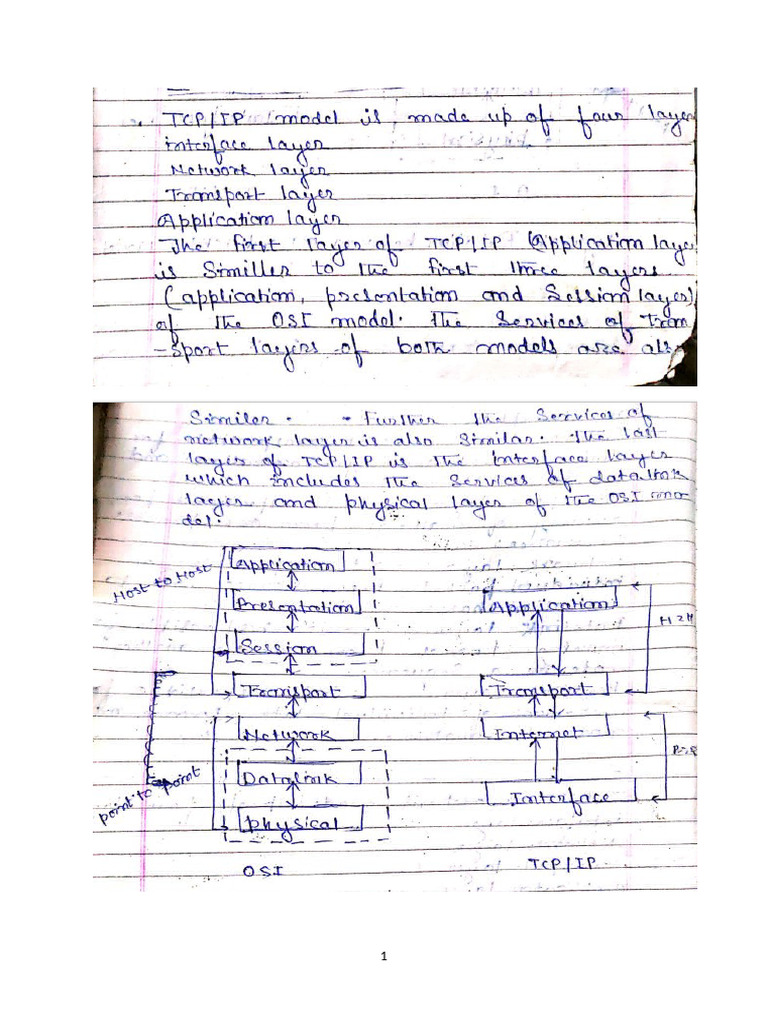 TCP/IP model is made up of four layer
interface layer
Network layer
Transport layer
Application layer
The first layer of TCP/IP (Application laye
is Similler to the first three layers
(application, presentation and Session layer)
of the OSI model. The Services of Tran
-sport layers of both models are als
Similer. Further the Services of
network layer is also Similar. The last
layer of TCP/IP is the interface layer
which includes the Services of datalink
layer and physical layer of the OSI mo
del.
Host to Host
Application
Presentation
Session
Transport
Network
Datalink
physical
point to point
OSI
Application
Transport
Internet
Interface
H2H
P2P
TCP/IP
1